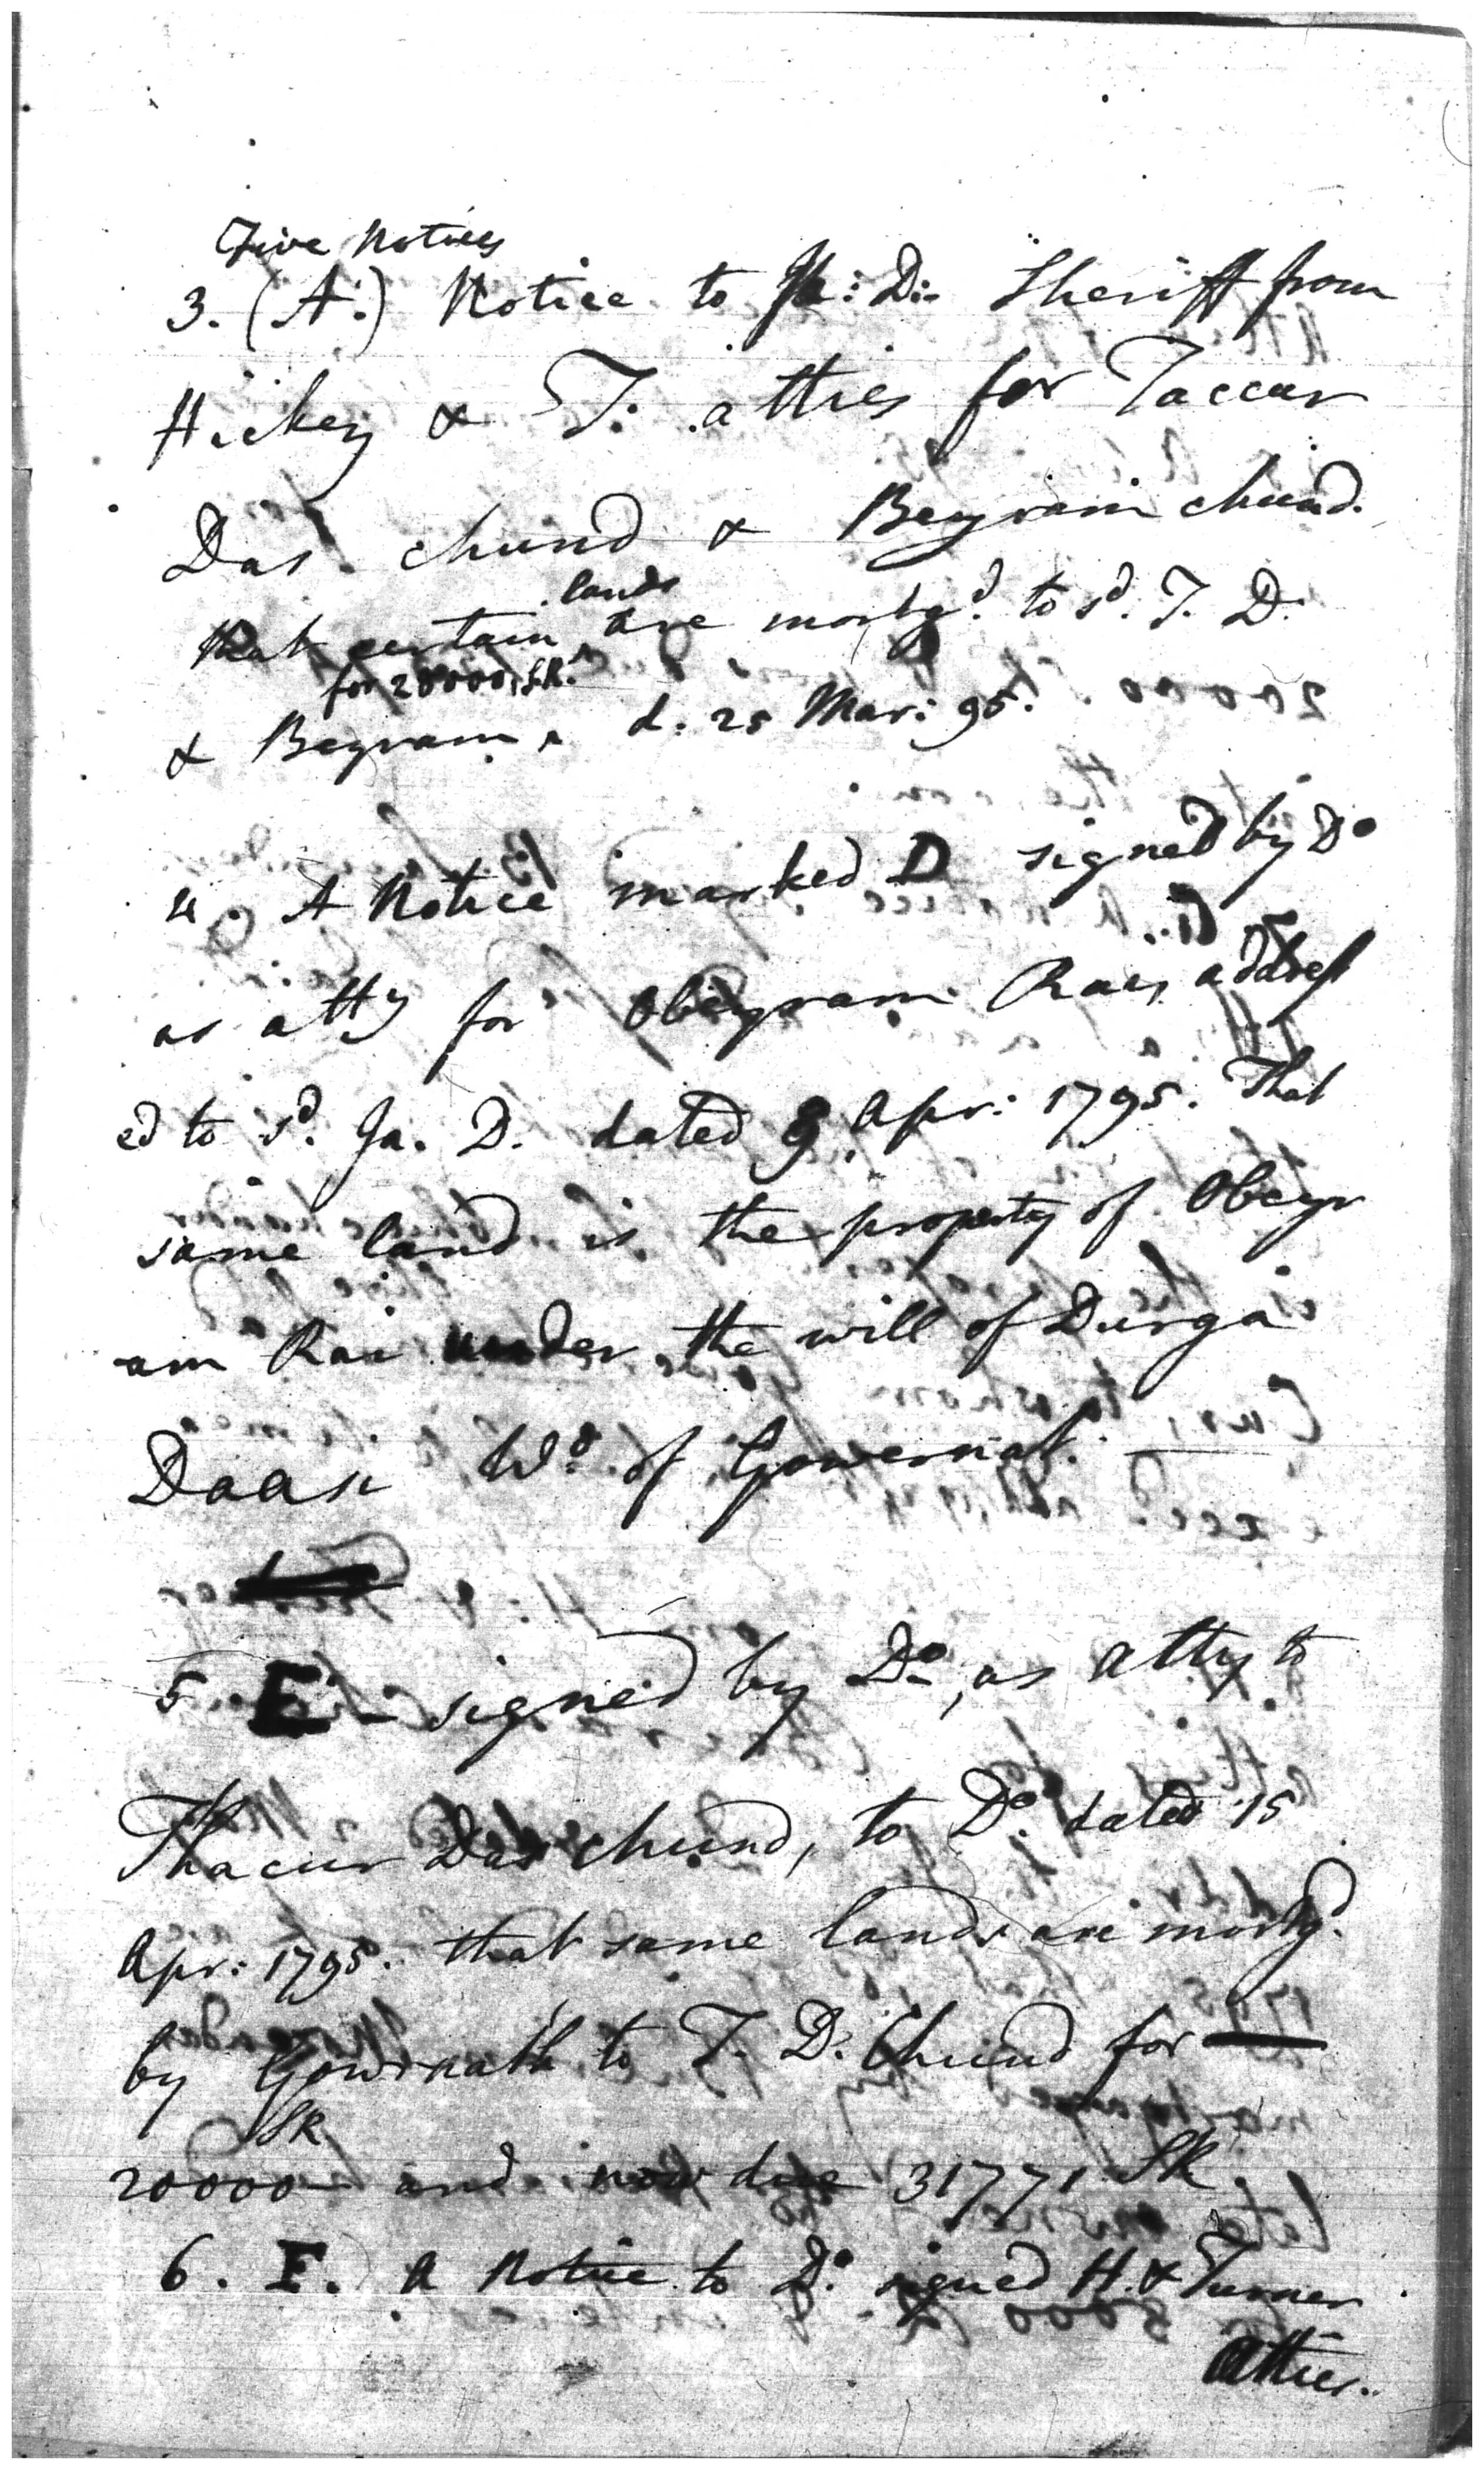 Five Notices
3. (A.) Notice to Ja: D:- Sheriff from
Hickey & T: atties for Taccur
Das. chund & Beyram chund.
lands
that certain ^ are mortg^d. to s^d. T. D.
for 20000 SR.
& Beyram ^ d: 25 Mar: 95.
4. A Notice marked D signed by D^o
as atty for Obeyram Raes address
ed to s^d. Ja. D. dated 9 Apr: 1795. That
same land is the property of Obeyr
am Rai under the will of Durga
Daase W^d. of Gowernat. —
5 E - signed by D^o, as atty to
Thacur Das chund, to D^o. dated 15
Apr: 1795. that same lands are mortg^d.
by Gowrnath to T. D. Chund for —
SR
20000 and now due 31771 SR.
6. F. A Notice to D^o. signed H. & Turner
Atties..